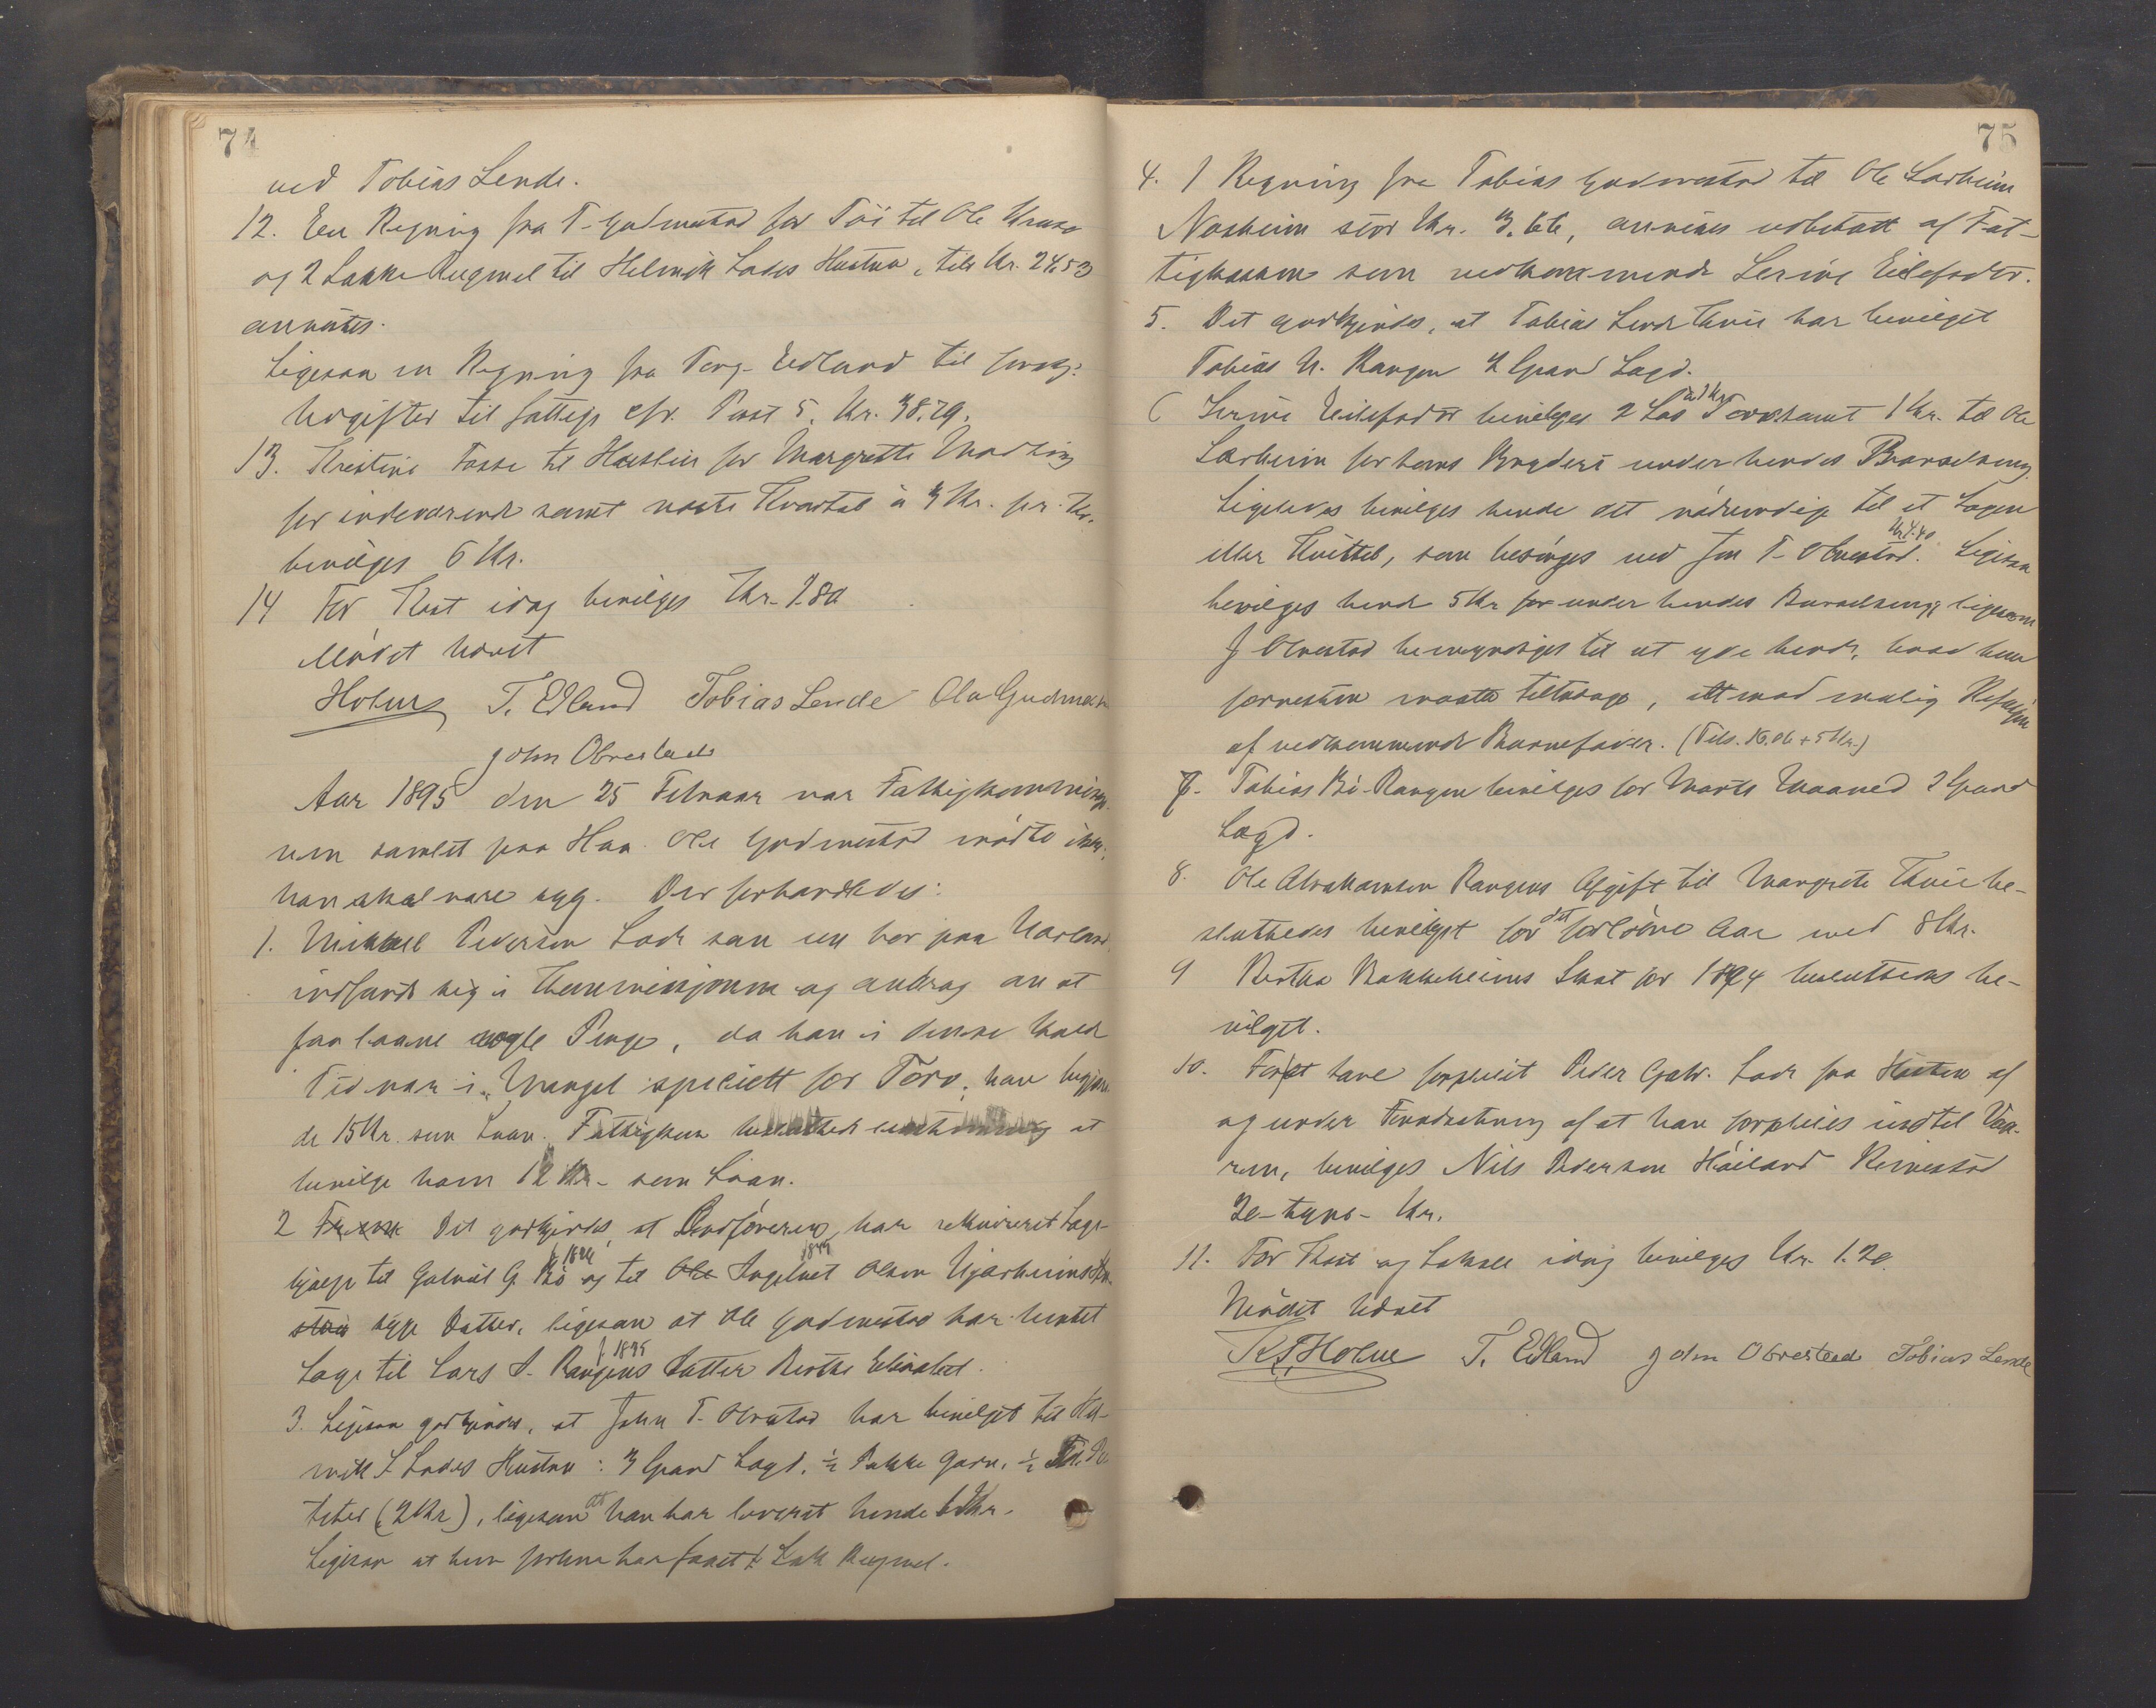 74
ved Tobias Lende.
12. En Regning fra T. Gudmestad for Töi til Ole
og 2 Sække Rugmel til Helmik Lodes Hustru, tils Kr. 24.53
anvistes.
Ligesaa en Regning fra Torg. Edland til forskj.
Udgifter til fattige cfr. Post 5. Kr. 38.79.
13. Kristine Fosse til Husleie for Margrethe
for indeværende samt næste Kvartal à 3 Kr. pr. Kv.
bevilges 6 Kr.
14 For Kost idag bevilges Kr. 1.80
Mödet hævet
Holme T. Edland Tobias Lende Ola Gudmestad
John Obrestad
Aar 1895 den 25 Februar var Fattigkommissio-
nen samlet paa Haa. Ole Gudmestad mödte ikke;
han skal være syg. Der forhandledes:
1. Mikkel Pederson Lode som nu bor paa
indfandt sig i Kommissjonen og androg om at
faa laane nogle Penge, da han i denne kolde
Tid var i Mangel specielt for Torv; han begjære-
de 15 Kr. som Laan. Fattigkom. besluttede at
bevilge ham 12 Kr. som Laan.
2 Det godkjendes, at Ordföreren har rekvireret Læge-
hjælp til Gabriel G. Bö f. 1894 og til Ole Ingebret Olson Njærheims 1894
syge Datter, ligesaa at Ole Gudmestad har hentet
Læge til Lars S. Rangens f. 1895 Datter Berthe Elisabet.
3. Ligesaa godkjendes, at John T. Obrestad har bevilget til Hel-
mik L. Lodes Hustru: 3 Spand Lagd, ½ Pakke Garn, ½ Td. Po-
teter (2 Kr), ligesom at han har leveret hende 6 Kr.
Ligesaa at hun forhen har faaet 1 Sæk Rugmel.
75
4. 1 Regning fra Tobias Gudmestad til Ole Larheim
Nærheim stor Kr. 3.66, anvises udbetalt af Fat-
tigkassen som vedkommende Serine Eilefsdtr.
5. Det godkjendes, at Tobias Lende Thuie har bevilget
Tobias N. Rangen 4 Spand Lagd.
6 Serine Eilefsdtr bevilges 2 Læs Torv samt 1 Kr. til Ole
Larheim for hans Bryderi under hendes Barselseng.
Ligeledes bevilges hende det nödvendige til et Lagen
eller Kvittel, som besörges ved Jon T. Obrestad. Kr 4.40 Ligesaa
bevilges hende 5 Kr for under hendes Barselseng, ligesom
J Obrestad bemyndiges til at yde hende, hvad hun
forresten maatte tiltrænge, alt mod mulig Refusjon
af vedkommende Barnefader. (Tils. 16.06 + 5 Kr.)
7. Tobias Bö-Rangen bevilges for Marts Maaned 2 Spand
Lagd.
8. Ole Abrahamsen Rangens Afgift til Margrete Thuie be-
sluttedes bevilget for det forlöbne Aar med 8 Kr.
9 Berthe Bakkeheims Skat for 1894 besluttedes be-
vilget.
10. For at have forpleiet Peder Gabr. Lode fra Hösten af
og under Forudsætning af at han forpleies indtil Vaa-
ren, bevilges Nils Pederson Höiland Reinestad
20 - tyve - Kr.
11. For Kost og Lokale idag bevilges Kr. 1.20.
Mödet hævet
Holme T. Edland John Obrestad Tobias Lende